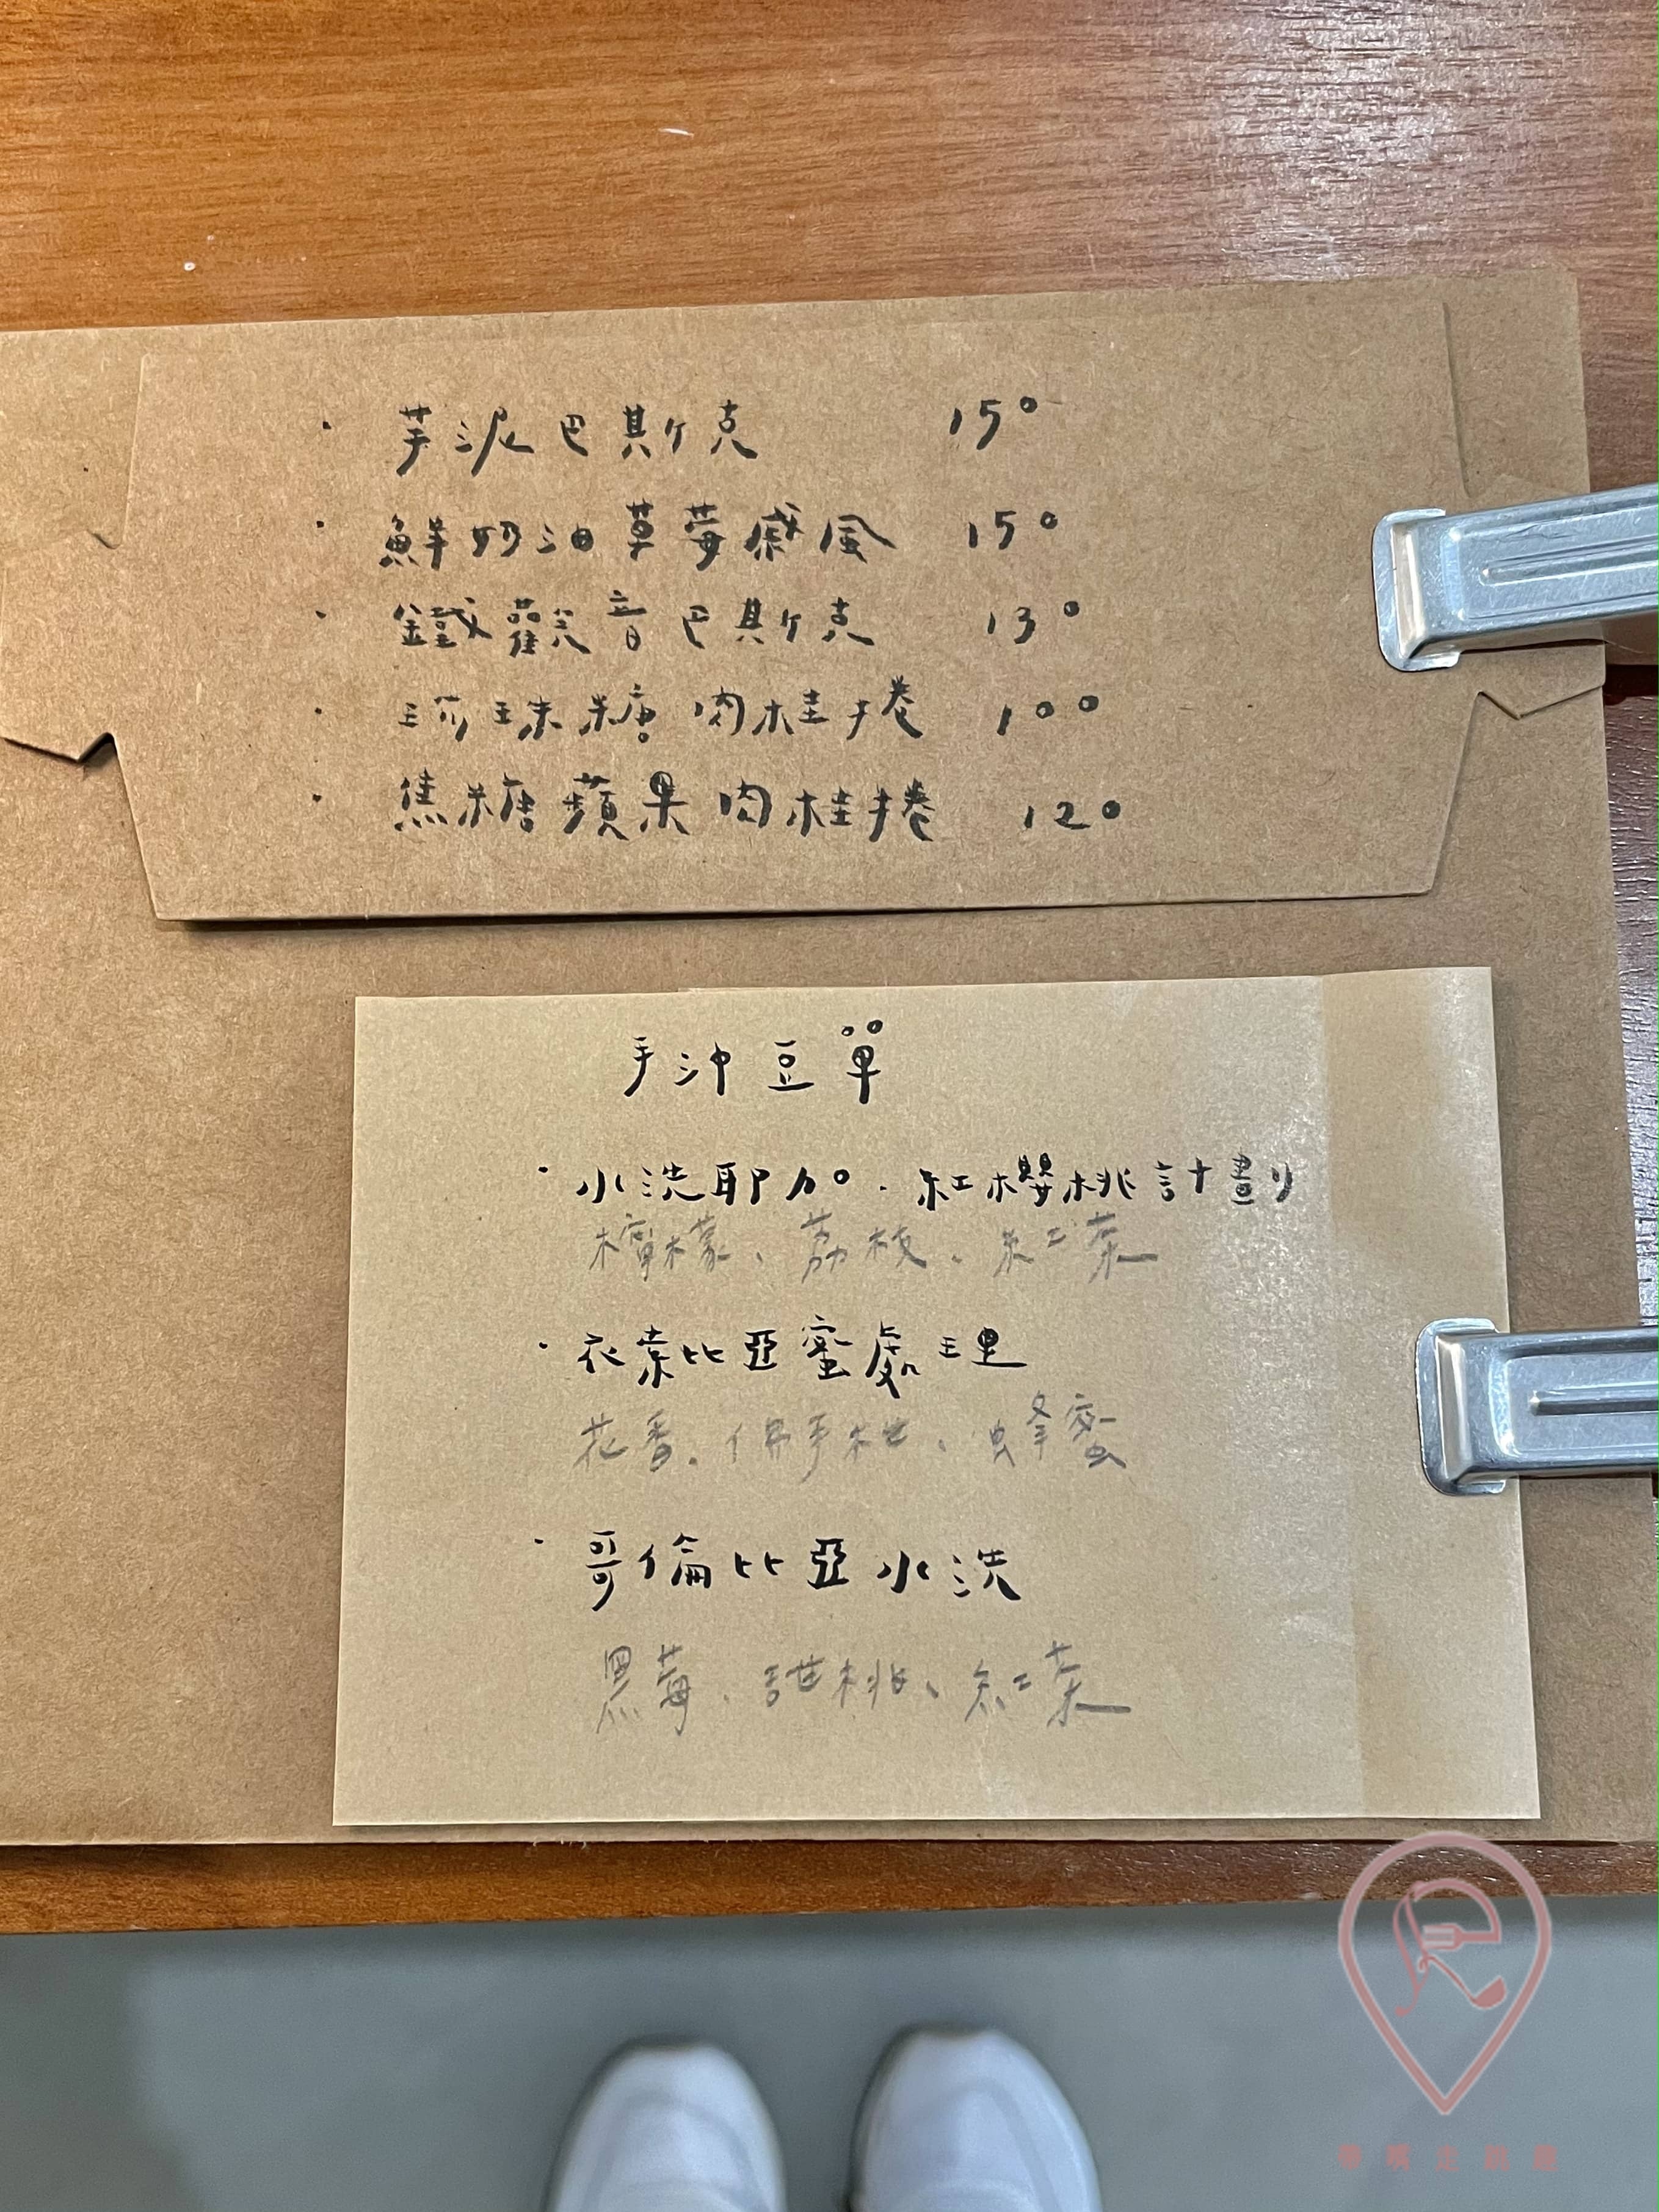 · 芋泥巴斯克 150
· 鮮奶油草莓戚風 150
· 鐵觀音巴斯克 130
· 珍珠糖肉桂捲 100
· 焦糖蘋果肉桂捲 120
手沖豆單
· 水洗耶加．紅櫻桃計劃
檸檬、荔枝、紅茶
· 衣索比亞蜜處理
花香、佛手柑、蜂蜜
· 哥倫比亞水洗
黑莓、甜桃、紅茶